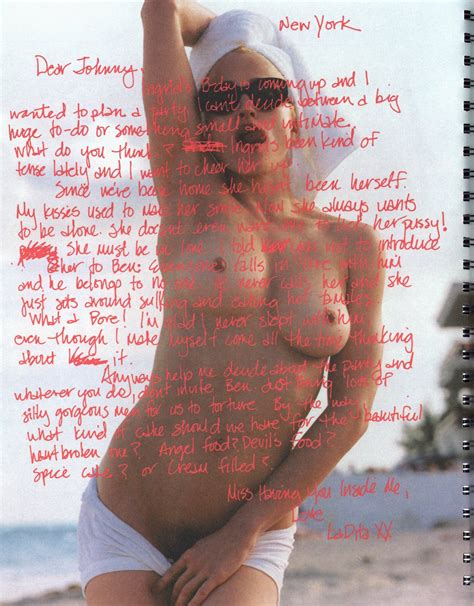 New York
Dear Johnny,
Ingrid's B-day is coming up and I
wanted to plan a party. I can't decide between a big
huge to-do or something small and intimate.
What do you think? Ingrid's been kind of
tense lately and I want to cheer her up.
Since we've been home she hasn't been herself.
My kisses used to make her smile. Now she always wants
to be alone. She doesn't even want me to her pussy!
She must be in love. I told her not to introduce
her to Ben. Everyone falls in love with him
and he belongs to no one. He never calls her and she
just sits around sulking and eating her
What a Bore! I'm glad I never slept with him
even though I make myself come all the time thinking
about it.
Anyways help me decide about the party and
whatever you do, don't invite Ben. Just bring lots of
silly gorgeous men for us to torture. By the way,
what kind of cake should we have for the beautiful
heart broken one? Angel food? Devils food?
Spice cake? or Cream filled?
Miss Having You Inside Me,
Love
XX